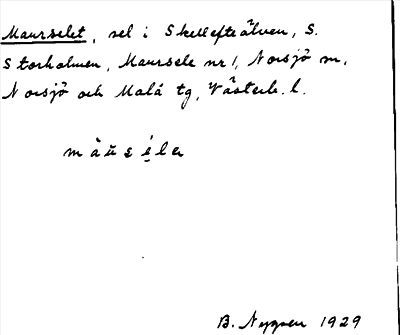 Maurselet, sel i Skellefteälven, S.
Storholmen, Maursele nr 1, Norsjö sn,
Norsjö och Malå tg, Västerb. l.
B. Nygren 1929